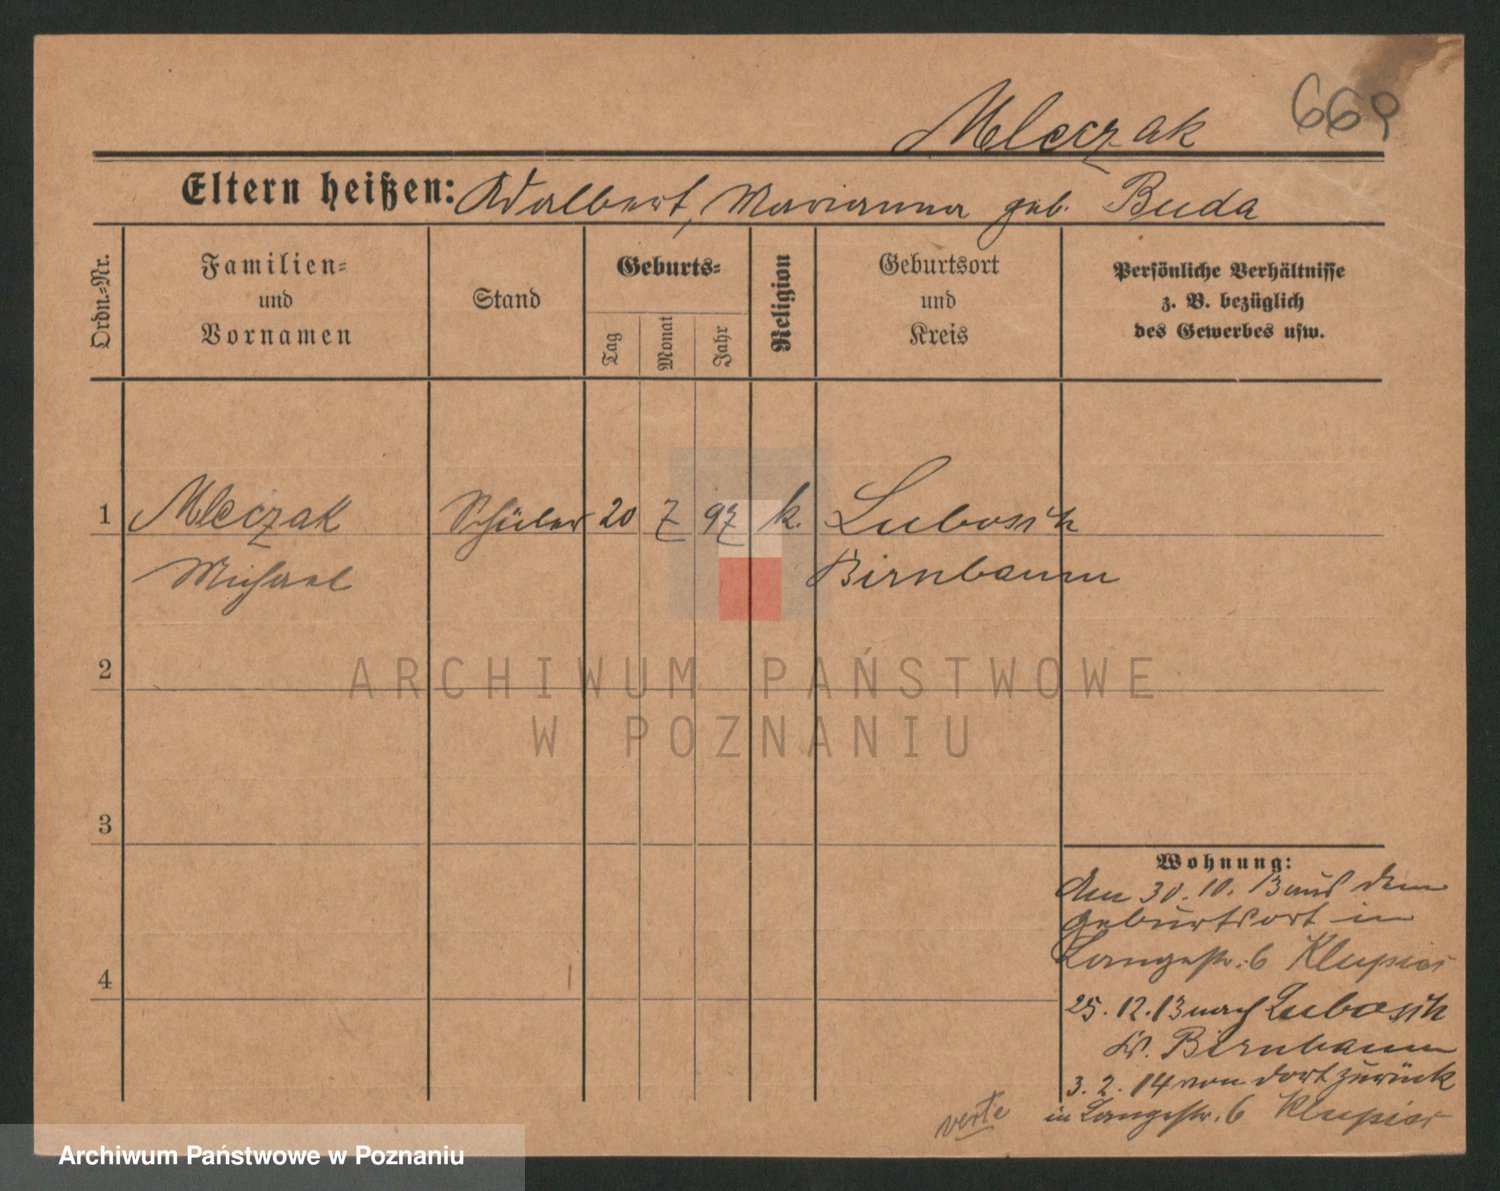 669
Mleczak
Eltern heißen: Adalbert, Marianna geb. Buda
Ordn.-Nr.
Familien-
und
Vornamen
Stand
Geburts-
Tag
Monat
Jahr
Religion
Geburtsort
und
Kreis
Persönliche Verhältnisse
z. B. bezüglich
des Gewerbes usw.
1 Mleczak Schüler 20 7 97 k. Lubosch
Michael Birnbaum
2
ARCHIWUM PAŃSTWOWE
W POZNANIU
3
Wohnung:
Am 30. 10. 13 aus dem
Geburtsort in
Langestr. 6 Klupieć
4
25. 12. 13 nach Lubosch
Kr. Birnbaum
3. 2. 14 von dort zurück
in Langestr. 6 Klupieć
verte
Archiwum Państwowe w Poznaniu